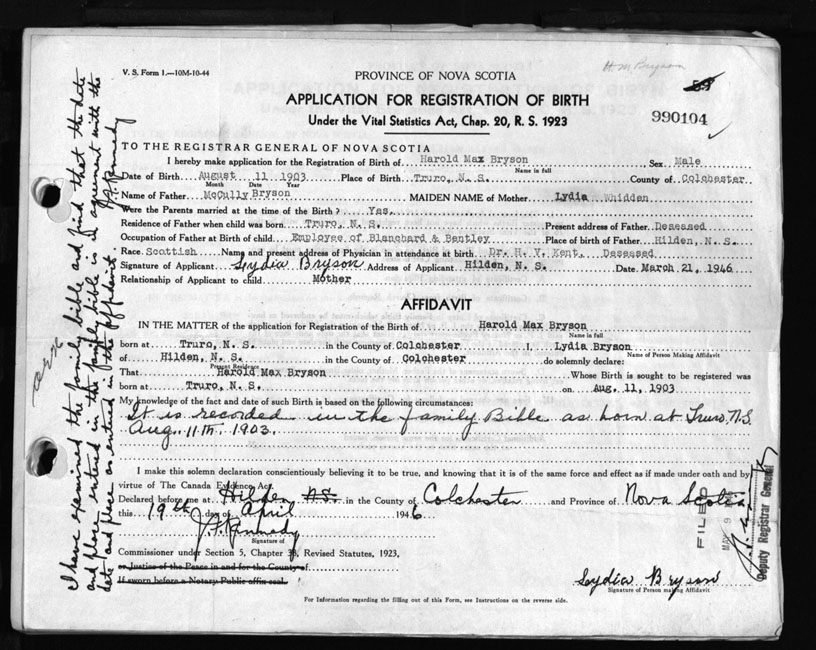 H M Bryson
V. S. Form 1.—10M-10-44
PROVINCE OF NOVA SCOTIA
APPLICATION FOR REGISTRATION OF BIRTH
Under the Vital Statistics Act, Chap. 20, R. S. 1923
990104
TO THE REGISTRAR GENERAL OF NOVA SCOTIA
I hereby make application for the Registration of Birth of Harold Max Bryson Sex Male
Name in full
Date of Birth August 11 1903 Place of Birth Truro, N. S. County of Colchester
Month Date Year
Name of Father McCully Bryson MAIDEN NAME of Mother Lydia Whidden
Were the Parents married at the time of the Birth? Yes.
Residence of Father when child was born Truro, N. S. Present address of Father Deseased
Occupation of Father at Birth of child Employee of Blanchard & Bentley Place of birth of Father Hilden, N.S.
Race Scottish Name and present address of Physician in attendance at birth Dr. H. V. Kent, Deseased
Signature of Applicant Lydia Bryson Address of Applicant Hilden, N. S. Date March 21, 1946
Relationship of Applicant to child Mother
AFFIDAVIT
IN THE MATTER of the application for Registration of the Birth of Harold Max Bryson
Name in full
born at Truro, N. S. in the County of Colchester I, Lydia Bryson
Name of Person Making Affidavit
of Hilden, N. S. in the County of Colchester do solemnly declare:
Present Residence
That Harold Max Bryson Whose Birth is sought to be registered was
born at Truro, N. S. on Aug. 11, 1903
My knowledge of the fact and date of such Birth is based on the following circumstances:
It is recorded in the family Bible as born at Truro, N.S.
Aug. 11th 1903.
I make this solemn declaration conscientiously believing it to be true, and knowing that it is of the same force and effect as if made under oath and by
virtue of The Canada Evidence Act.
Declared before me at Hilden N.S. in the County of Colchester and Province of Nova Scotia
this 19th day of April 1946
J. F. Kennedy
Signature of
Commissioner under Section 5, Chapter 38, Revised Statutes, 1923,
or Justice of the Peace in and for the County of
If sworn before a Notary Public affix seal.
Lydia Bryson
Signature of Person making Affidavit
For Information regarding the filling out of this Form, see Instructions on the reverse side.
I have examined the family bible and find that the date
and place entered in the family bible is in agreement with the
date and place as entered in the applicant.
J. F. Kennedy
FILED
Deputy Registrar General